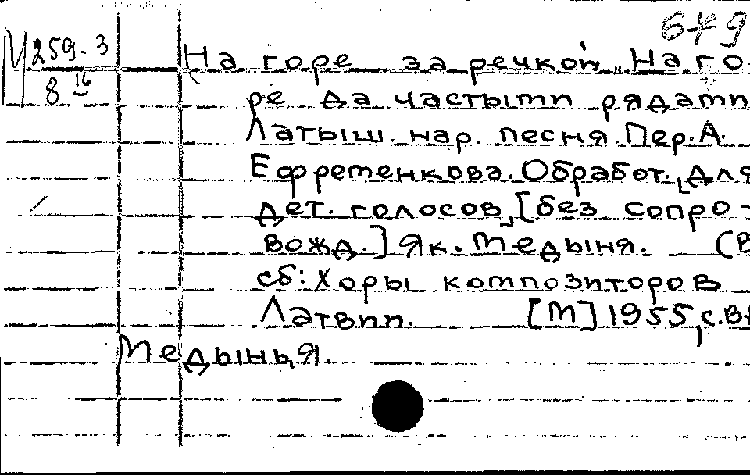 649
М 259-3
8 16
На горе за речкой „На го-
ре да частыми рядами
Латыш. нар. песня. Пер. А.
Ефременкова. Обработ. для
дет. голосов, [без сопро-
вожд.] Як. Медыня. (В
сб: Хоры композиторов
Латвии. [М] 1955, с.
Медынь, Я.